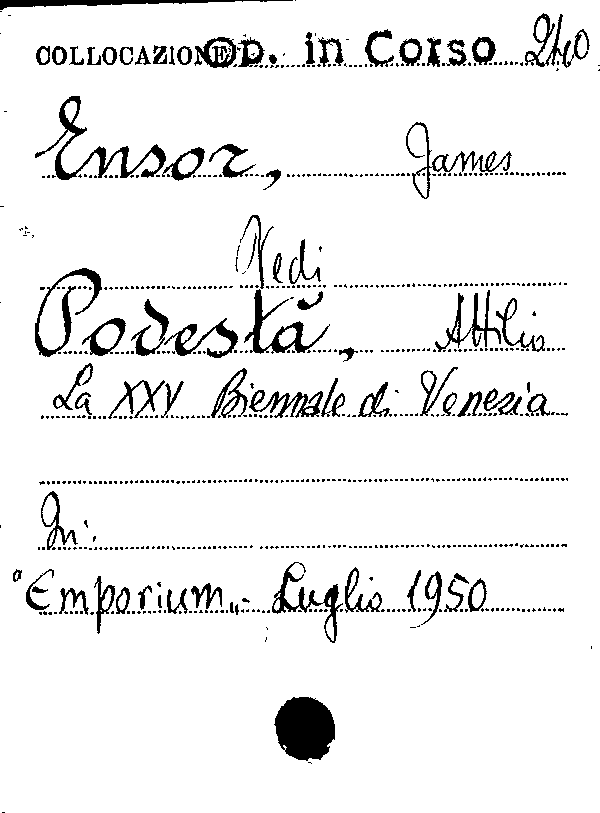 COLLOCAZIONE Op. in Corso 240
Ensor, James
Vedi
Podestà, Attilio
La XXV Biennale di Venezia
In:
"Emporium„- Luglio 1950